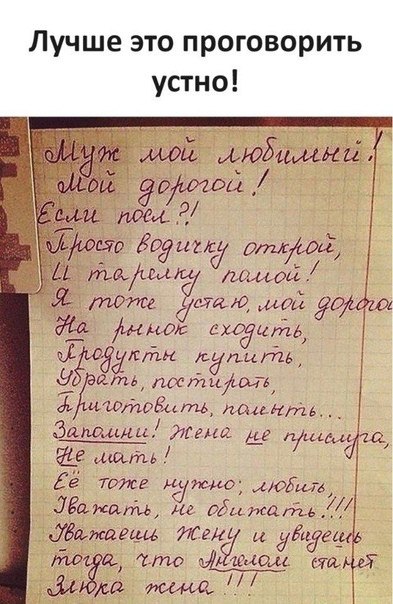 Лучше это проговорить
устно!
Муж мой любимый!
Мой дорогой!
Если поел?!
Просто водичку открой,
И тарелку помой!
Я тоже устаю, мой дорогой
На рынок сходить,
Продукты купить,
Убрать, постирать,
Приготовить, помыть...
Запомни! Жена не прислуга,
Не мать!
Её тоже нужно; любить,
Уважать, не обижать!!!
Уважаешь жену и увидешь
тогда, что Ангелом станет
Злюка жена!!!